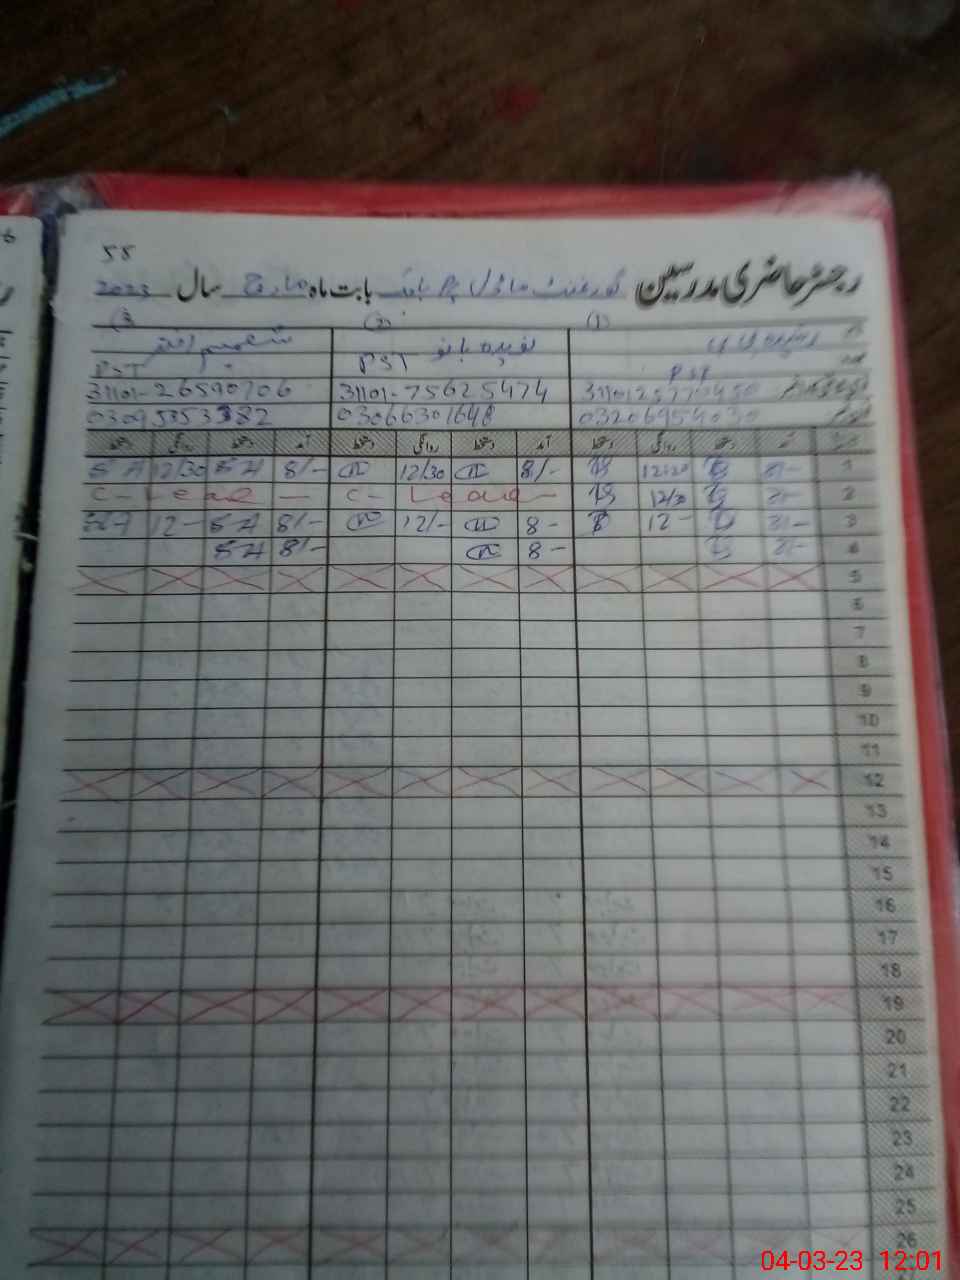 58
رجسٹر حاضری مدرسین گورنمنٹ ماڈل پر بابت ماہ مارچ سال 2023
(1) (2) (3
نام نویدہ بانو شمیم اختر
عہدہ PST PST PST
31101-75625474 31101-26590706
03206954030 03066301648 03095353382
تاریخ آمد دستخط روانگی دستخط آمد دستخط روانگی دستخط آمد دستخط روانگی دستخط
1 8/- 12:30 8/- 12/30 8/- SA 12/30 SA
2 8/- 12/30 C- Leave - C- Leave -
3 8/- 12- 8- 12/- 8/- SA 12- SA
4 8/- 8- 8/- SA
5
6
7
8
9
10
11
12
13
14
15
16
17
18
19
20
21
22
23
24
25
26
04-03-23 12:01